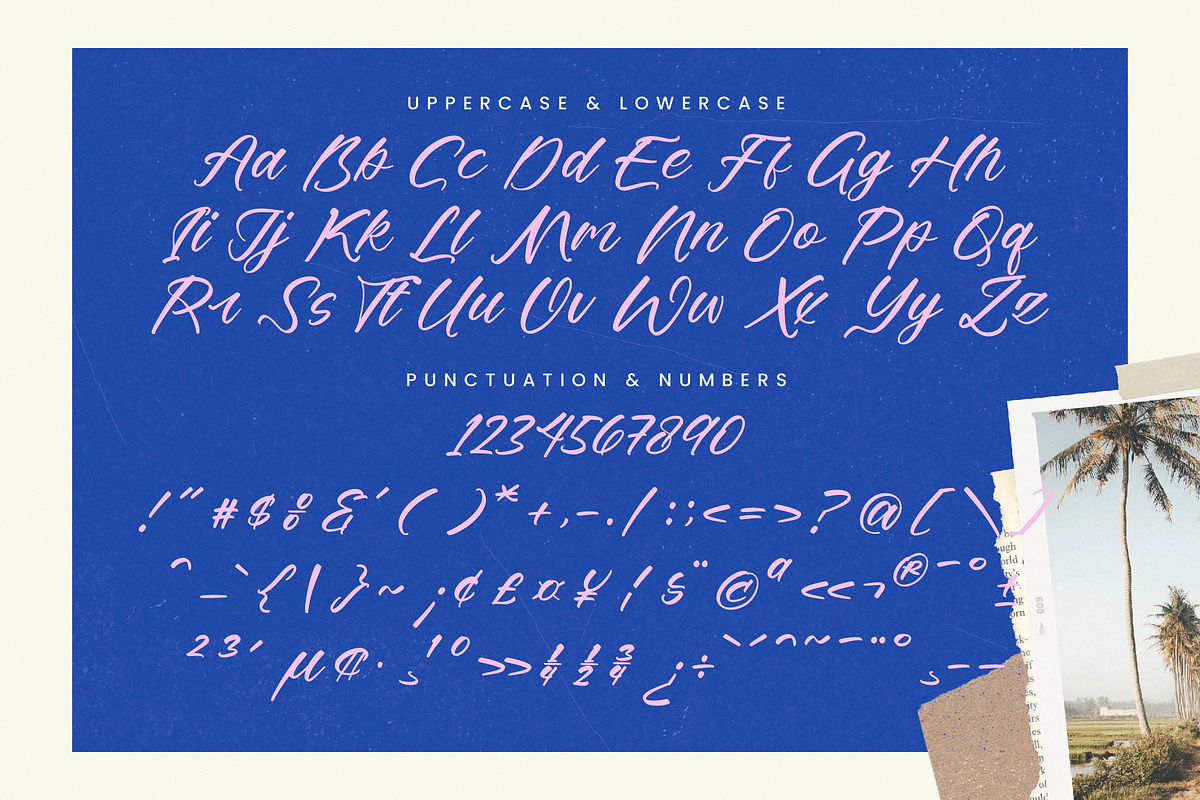 UPPERCASE & LOWERCASE
Aa Bb Cc Dd Ee Ff Gg Hh
Ii Jj Kk Ll Mm Nn Oo Pp Qq
Rr Ss Tt Uu Vv Ww Xx Yy Zz
PUNCTUATION & NUMBERS
1234567890
! " # $ % & ' ( ) * + , - . / : ; < = > ? @ [ \ ]
^ _ ` { | } ~ ¡ ¢ £ ¤ ¥ ¦ § ¨ © ª « ¬ ® ¯ ° ±
² ³ ´ µ ¶ · ¸ ¹ º » ¼ ½ ¾ ¿ ÷ ` ´ ^ ~ ¯ ¨ ° ¸ – —
be
ough
orld
ng
orn
600